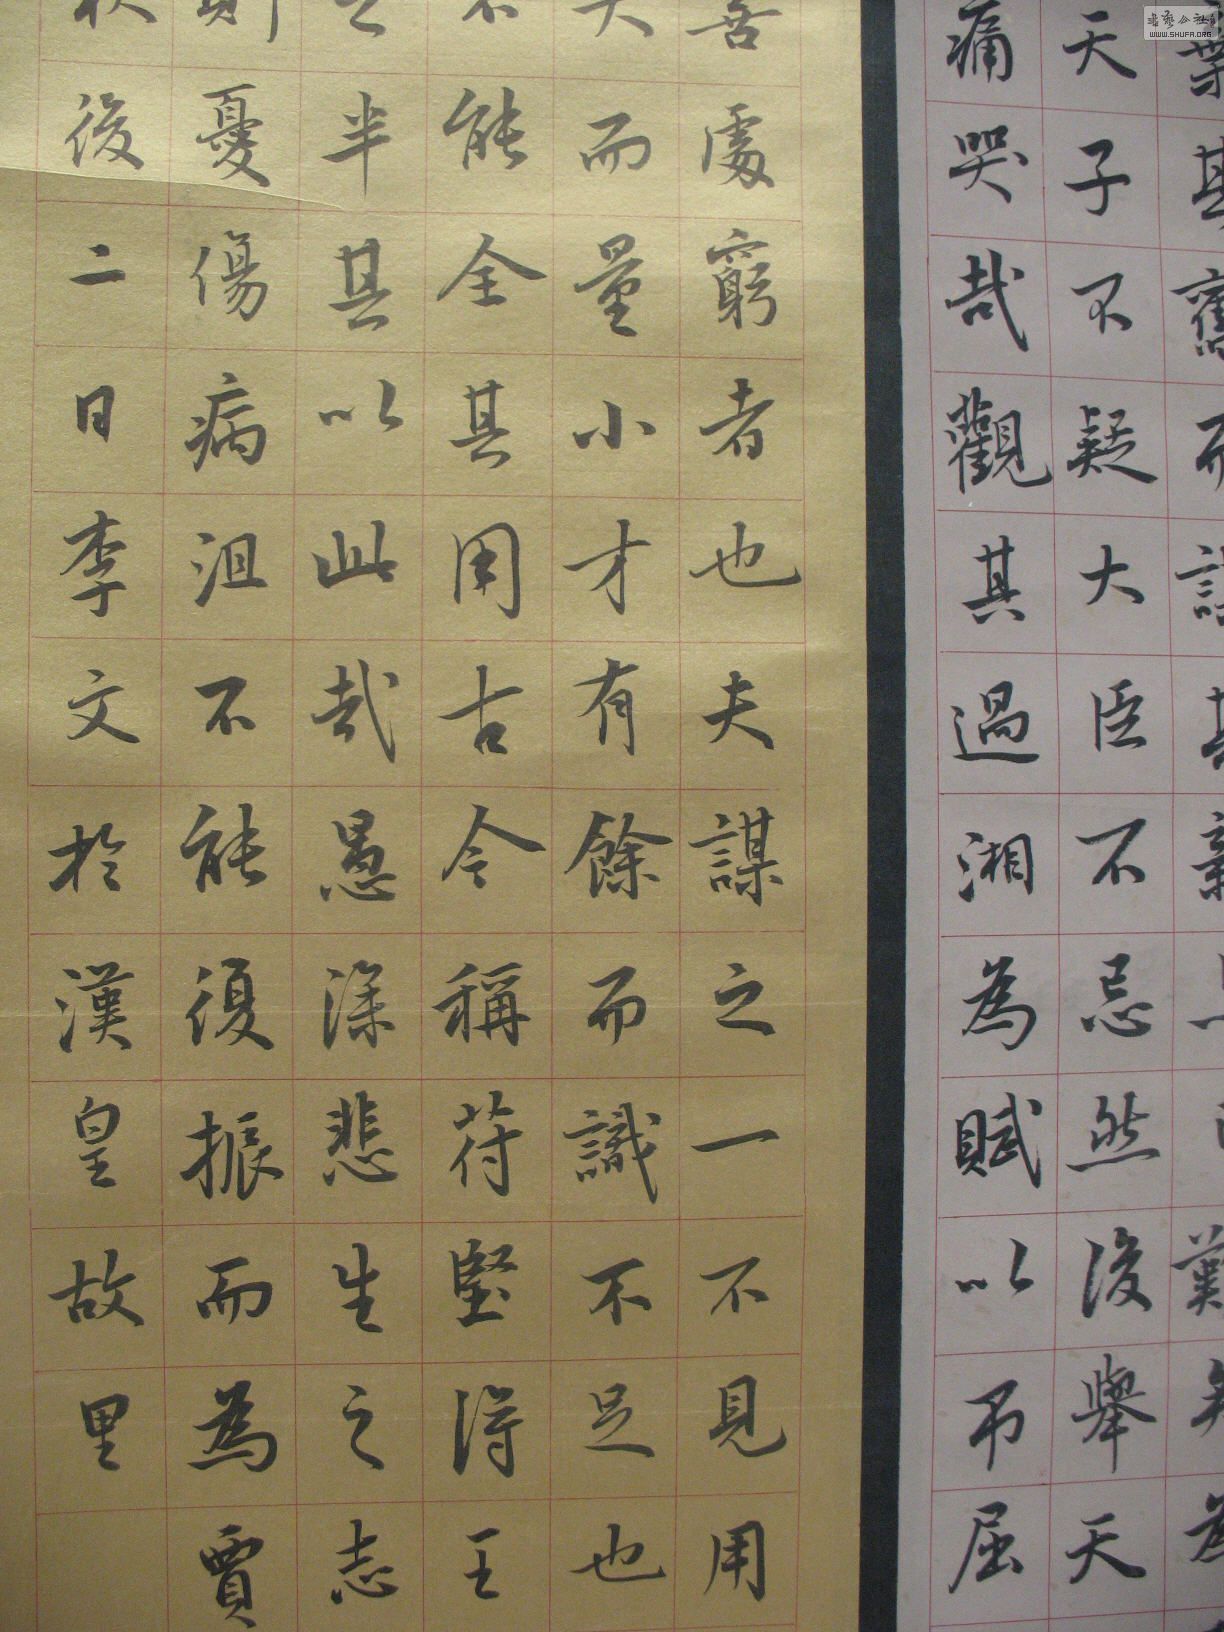 棄其舊而謀其新亦已難矣為
天子不疑大臣不忌然後舉天
痛哭哉觀其過湘為賦以吊屈
善處窮者也夫謀之一不見用
大而量小才有餘而識不足也
不能全其用古今稱苻堅得王
之半其以此哉愚深悲生之志
則憂傷病沮不能復振而為賈
秋後二日李文於漢皇故里
書藝公社
WWW.SHUFA.ORG